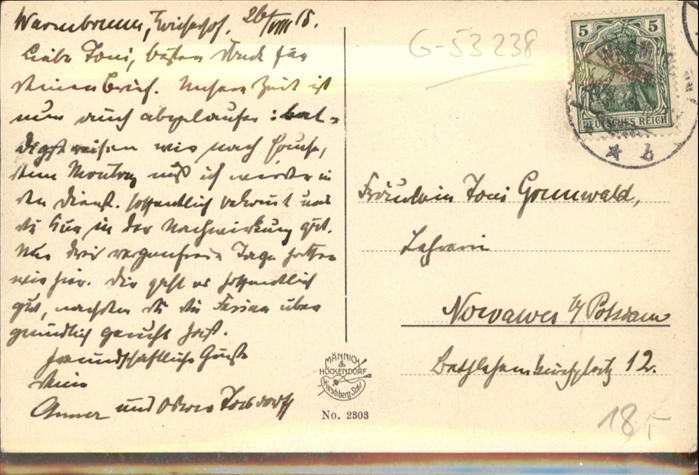 Warmbrunn, 26/VIII 15.
Liebe Toni, besten Dank für
Deinen Brief. Unsere Zeit ist
nun auch abgelaufen: bal-
digst reisen wir nach Hause,
denn Montag muß ich wieder in
den Dienst. Hoffentlich bekommt uns
die Kur in der Nachwirkung gut.
Nur drei regenfreie Tage hatten
wir hier. Dir geht es hoffentlich
gut, nachdem Du die Ferien über
gründlich geruht hast.
Freundschaftliche Grüße
Deine
und
G-53238
5 5
DEUTSCHES REICH
Fräulein Toni Grunwald,
Lehrerin
Nowawes b/ Potsdam
Bethlehemkirchplatz 12.
MÄNNICH
&
HÖCKENDORF
Hirschberg Schl.
No. 2303
18,-